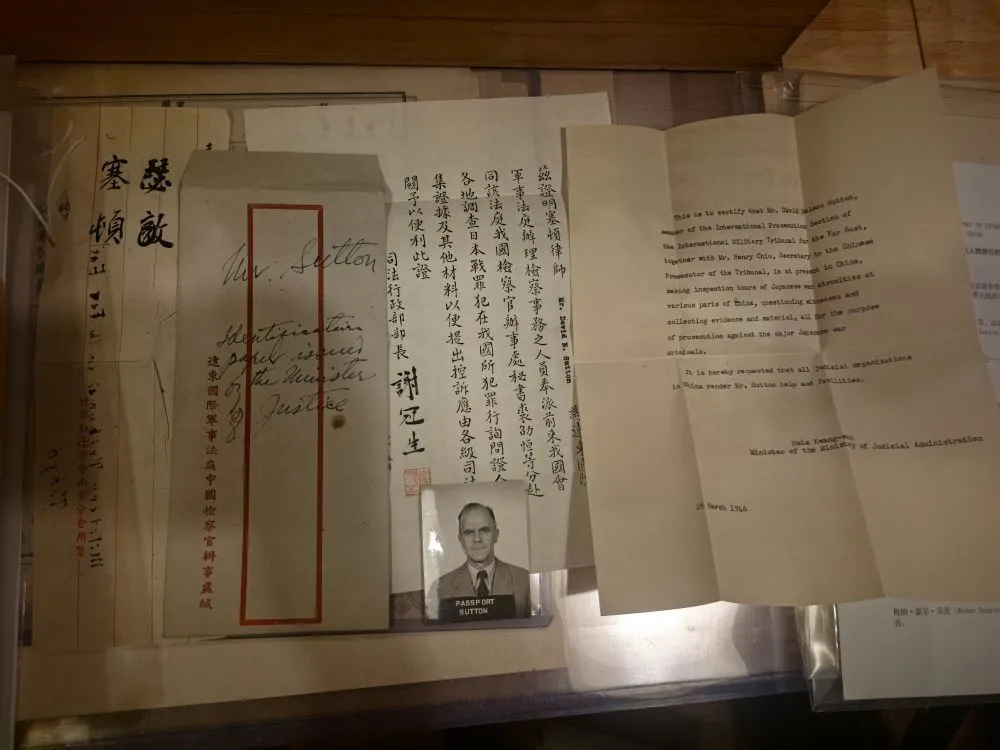 瑟敵
塞頓
世界紅卍字會南京分會用箋
Mr. Sutton
Identification
paper issued
by the Minister
of Justice
遠東國際軍事法庭中國檢察官辦事處緘
茲證明塞頓律師 Mr. David N. Sutton 為遠東國際
軍事法庭辦理檢察事務之人員奉派前來我國會
同該法庭我國檢察官辦事處秘書裘劭恒等分赴
各地調查日本戰罪犯在我國所犯罪行詢問證人
集證據及其他材料以便提出控訴應由各級司法
關予以便利此證
司法行政部部長 謝冠生
PASSPORT
SUTTON
This is to certify that Mr. David Nelson Sutton,
member of the International Prosecution Section of
the International Military Tribunal for the Far East,
together with Mr. Henry Chiu, Secretary to the Chinese
Prosecutor of the Tribunal, is at present in China,
making inspection tours of Japanese war atrocities at
various parts of China, questioning witnesses and
collecting evidence and material, all for the purpose
of prosecution against the major Japanese war
criminals.
It is hereby requested that all judicial organizations
in China render Mr. Sutton help and facilities.
Minister of the Ministry of Judicial Administration
March 1946